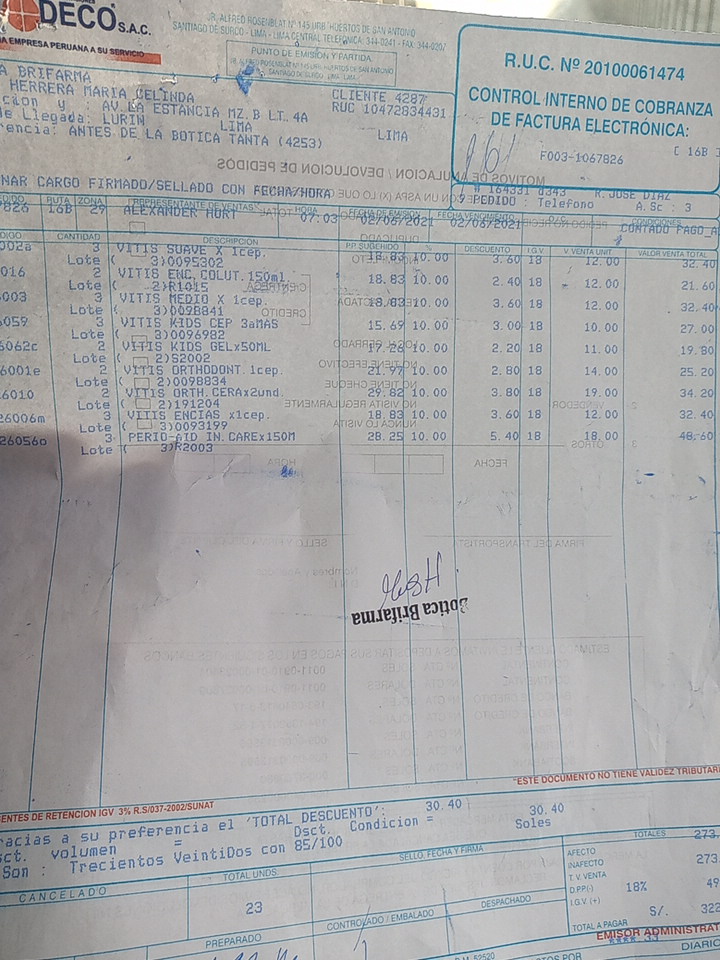 DECO S.A.C.
EMPRESA PERUANA A SU SERVICIO
JR. ALFREDO ROSENBLAT Nº 145 URB. HUERTOS DE SAN ANTONIO
SANTIAGO DE SURCO - LIMA - LIMA CENTRAL TELEFONICA: 344-0241 - FAX: 344-020
PUNTO DE EMISIÓN Y PARTIDA
JR. ALFREDO ROSENBLAT Nº 145 URB. HUERTOS DE SAN ANTONIO
SANTIAGO DE SURCO - LIMA - LIMA
R.U.C. Nº 20100061474
CONTROL INTERNO DE COBRANZA
DE FACTURA ELECTRÓNICA:
F003-1067826
C 16B
A BRIFARMA
HERRERA MARIA CELINDA
CLIENTE 4287
RUC 10472834431
cion y : AV.LA ESTANCIA MZ.B LT. 4A
de Llegada: LURIN LIMA LIMA
rencia: ANTES DE LA BOTICA TANTA (4253)
MOTIVOS DE ANULACION / DEVOLUCION DE PEDIDOS
NAR CARGO FIRMADO/SELLADO CON FECHA/HORA
# 164331 0343 R. JOSE DIAZ
PEDIDO : Telefono A.Sc : 3
RUTA ZONA REPRESENTANTE DE VENTAS HORA FECHA DE EMISION FECHA VENCIMIENTO O/C CONDICIONES
7826 16B 29 ALEXANDER HURT 07:03 02/06/2021 02/06/2021 CONTADO PAGO_A
CANTIDAD DESCRIPCION P.P. SUGERIDO % DESCUENTO I.G.V. V. VENTA UNIT VALOR VENTA TOTAL
002a 3 VITIS SUAVE X 1cep. 18.83 10.00 3.60 18 12.00 32.40
Lote ( 3)0095302
016 2 VITIS ENC.COLUT.150ml. 18.83 10.00 2.40 18 12.00 21.60
Lote ( 2)R1015
003 3 VITIS MEDIO X 1cep. 18.83 10.00 3.60 18 12.00 32.40
Lote ( 3)009B841
6059 3 VITIS KIDS CEP 3aMAS 15.69 10.00 3.00 18 10.00 27.00
Lote ( 3)0096982
6062c 2 VITIS KIDS GELx50ML 17.26 10.00 2.20 18 11.00 19.80
Lote ( 2)S2002
6001e 2 VITIS ORTHODONT.1cep. 21.97 10.00 2.80 18 14.00 25.20
Lote ( 2)009B834
26010 2 VITIS ORTH.CERAx2und. 29.82 10.00 3.80 18 19.00 34.20
Lote ( 2)191204
26006m 3 VITIS ENCIAS x1cep. 18.83 10.00 3.60 18 12.00 32.40
Lote ( 3)0093199
26056o 3 PERIO-AID IN.CAREx150M 28.25 10.00 5.40 18 18.00 48.60
Lote ( 3)R2003
Botica Brifarma
*ESTE DOCUMENTO NO TIENE VALIDEZ TRIBUTAR
ENTES DE RETENCION IGV 3% R.S/037-2002/SUNAT
racias a su preferencia el 'TOTAL DESCUENTO': 30.40
sct. volumen = Dsct. Condicion = 30.40
Son : Trecientos VeintiDos con 85/100 Soles
CANCELADO
TOTAL UNDS.
23
SELLO, FECHA Y FIRMA
PREPARADO
CONTROLADO / EMBALADO
DESPACHADO
TOTALES
AFECTO 273.
INAFECTO
T. V. VENTA 273.
D.P.P.(-)
I.G.V. (+) 18% 49
TOTAL A PAGAR S/. 322
EMISOR ADMINISTRAT
DIARIO